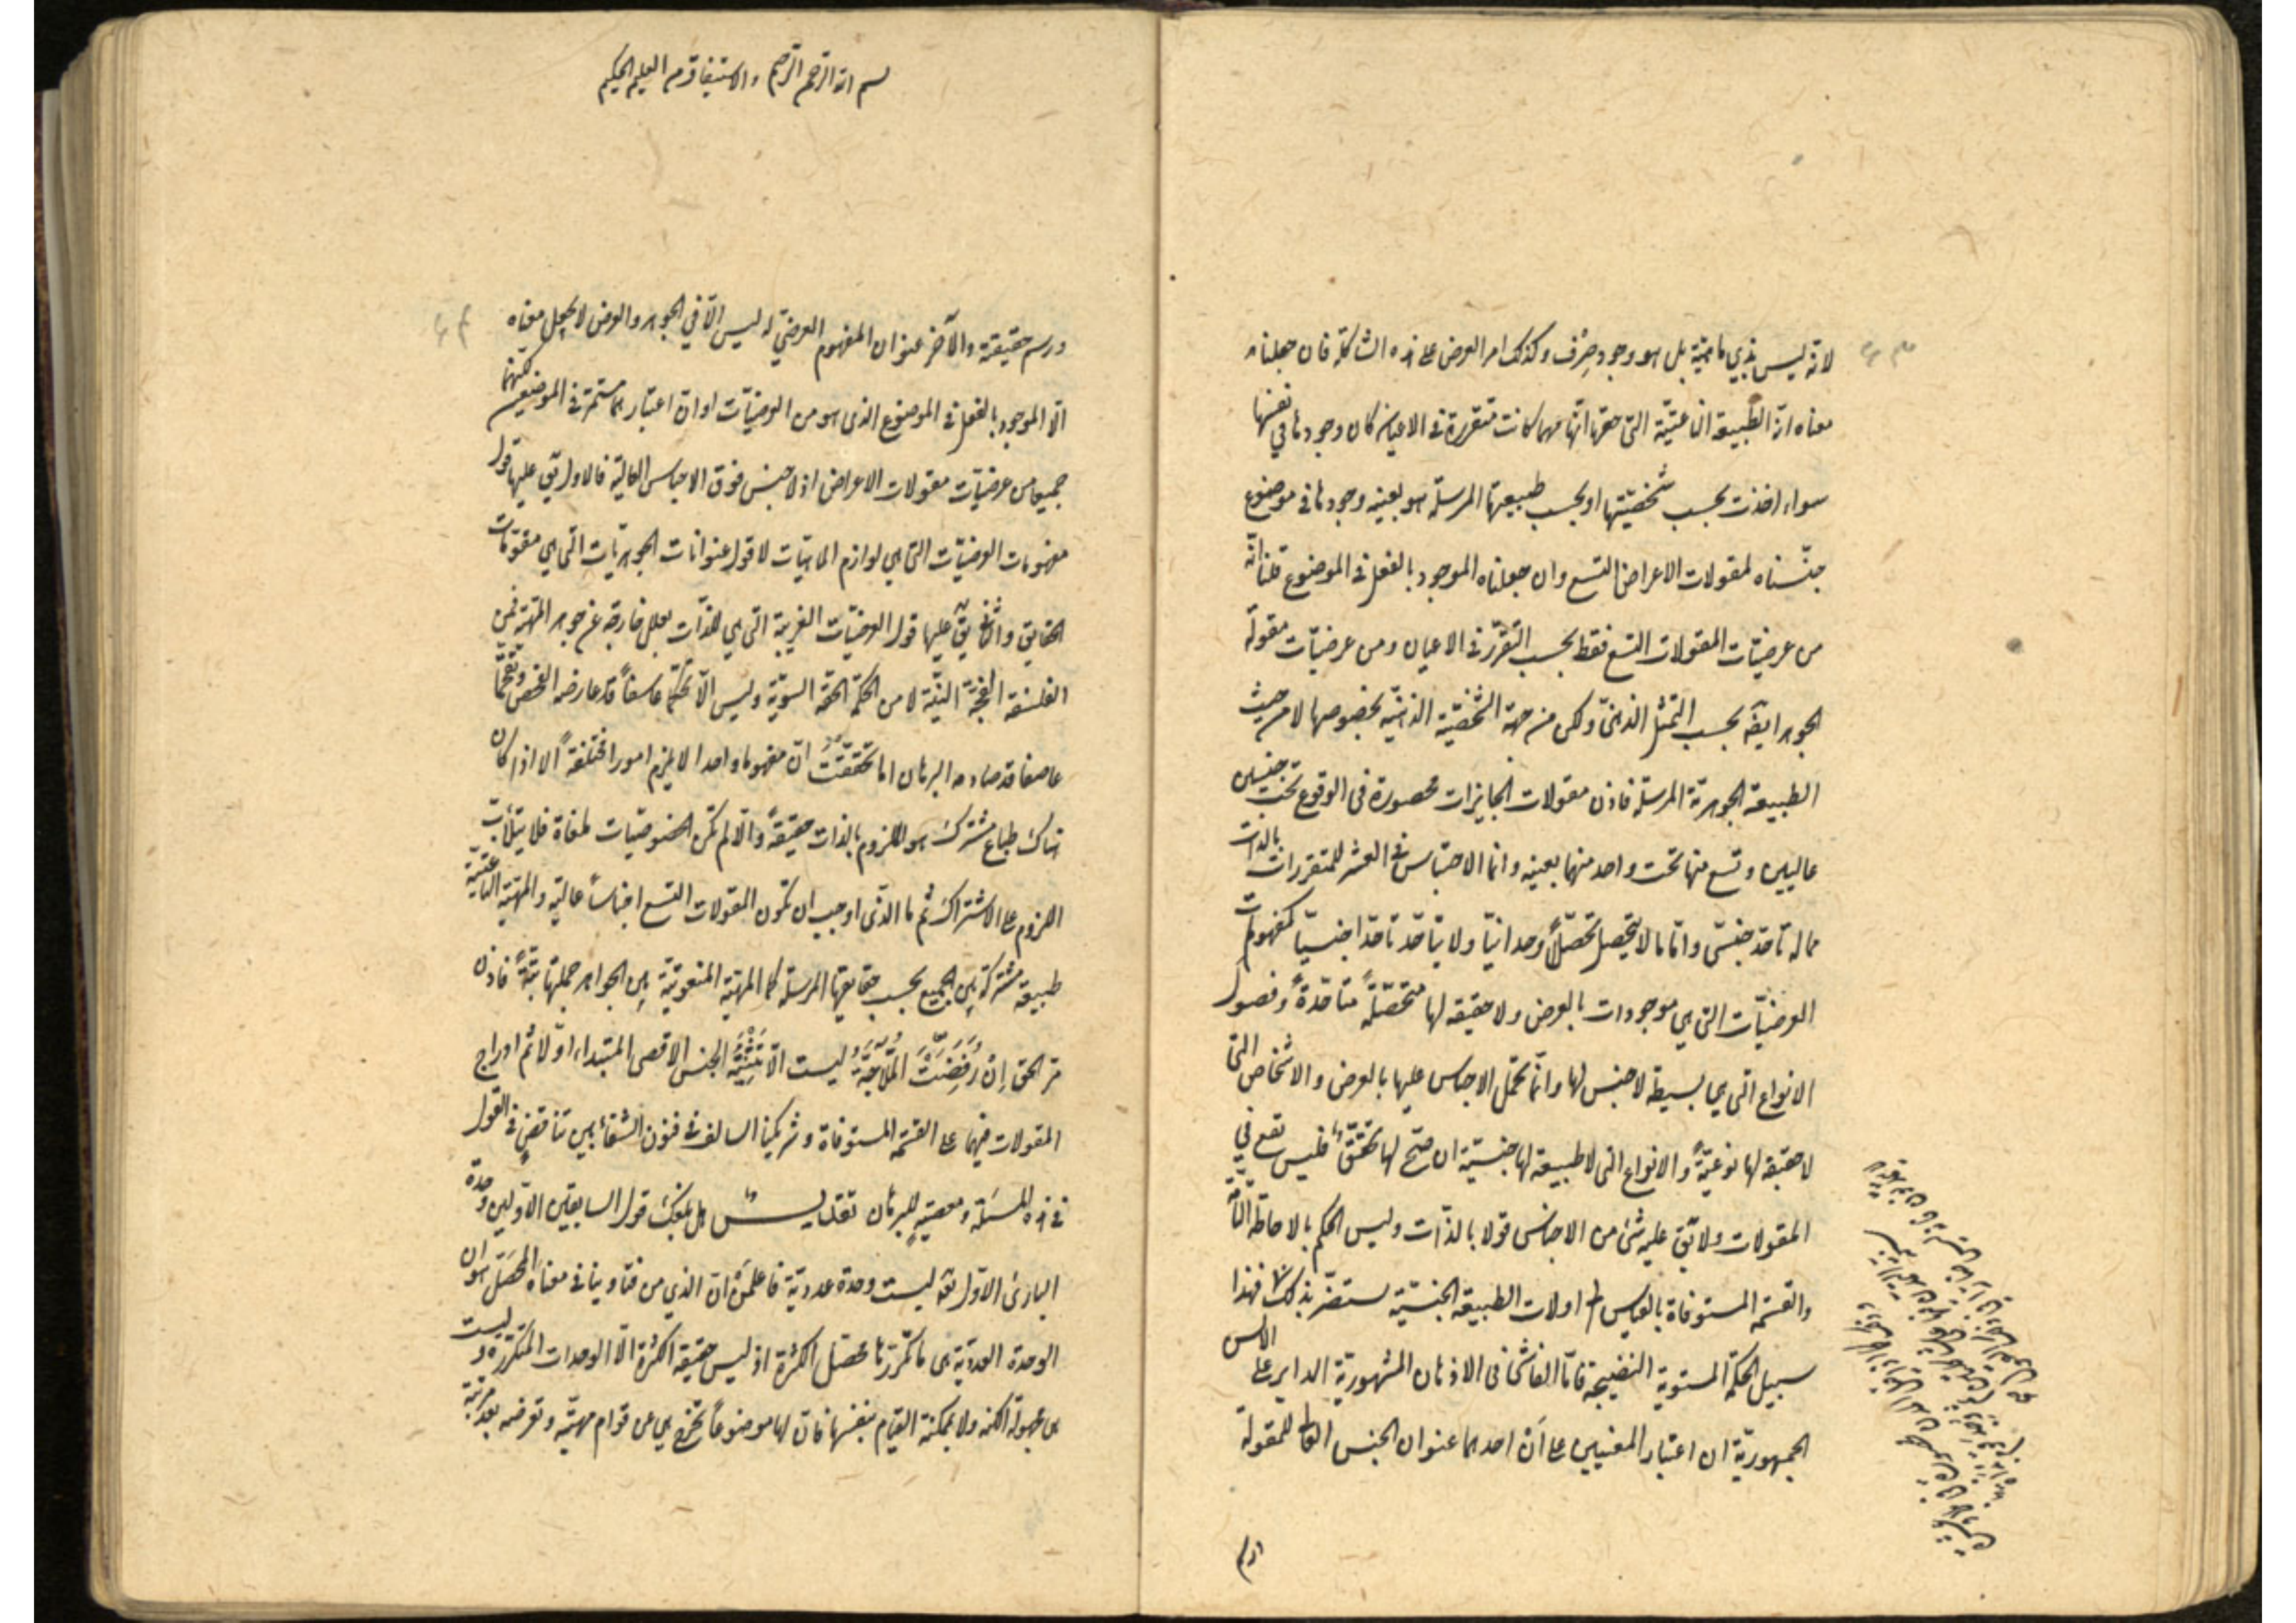 لانه ليس بذي ماهية بل هو وجود صرف وكذلك امر العرض على هذه الشاكلة فان جعلناه
معناه ان الطبيعة الناعتية التي حقها انها مهما كانت متقررة في الاعيان كان وجودها في نفسها
سواء اخذت بحسب شخصيتها او بحسب طبيعتها المرسلة هو بعينه وجودها في موضوع
جنسناه لمقولات الاعراض التسع وان جعلناه الموجود بالفعل في الموضوع قلنا انه
من عرضيات المقولات التسع فقط بحسب التقرر في الاعيان ومن عرضيات مقولة
الجوهر ايضا بحسب التمثل الذهني ولكن من جهة الشخصية الذهنية بخصوصها لا من حيث
الطبيعة الجوهرية المرسلة فاذن مقولات الجايزات محصورة في الوقوع تحت جنسين
عاليين وتسع منها تحت واحد منهما بعينه وانما الاحتباس في العشر للمتقررات بالذات
مما له تاحد جنسي واما ما لا يتحصل تحصلا وحدانيا ولا يتاحد تاحدا جنسيا كمفهومات
العرضيات التي هي موجودات بالعرض ولا حقيقة لها متحصلة متاحدة وفصول
الانواع التي هي بسيطة لا جنس لها وانما تحمل الاجناس عليها بالعرض والاشخاص التي
لا حقيقة لها نوعية والانواع التي لا طبيعة لها جنسية ان صح لها تحقق فليس تقع في
المقولات ولا يق عليه شئ من الاجناس قولا بالذات وليس الحكم بالاحاطة التامة
والقسمة المستوفاة بالقياس الى اولات الطبيعة الجنسية ستضر بذلك فهذا
سبيل الحكمة المستوية النضيجة فاما الفاشي في الاذهان المشهورية الداير على الالسن
الجمهورية ان اعتبار المعنيين على ان احدهما عنوان الجنس العالي للمقولة
اورسم
بسم الله الرحمن الرحيم والاستيفاق من العليم الحكيم
ورسم حقيقته والآخر عنوان المفهوم العرضي له ليس الا في الجوهر والعرض لا يجعل معناه
الا الموجود بالفعل في الموضوع الذي هو من العرضيات او ان اعتبارهما مستمر في الموضعين لكنهما
جميعا من عرضيات مقولات الاعراض اذ لا جنس فوق الاجناس العالية فالاول يق عليها قول
مفهومات العرضيات التي هي لوازم الماهيات لا قول عنوانات الجوهريات التي هي مقومات
الحقايق والثاني يق عليها قول العرضيات الغريبة التي هي للذات بعلل خارجة عن جوهر المهية فمن
الفلسفة الفجة النيئة لا من الحكمة الحقة السوية وليس الا تحكما عاسفا قد عارضه الفحص وتقحما
عاصفا قد صادمه البرهان اما تحققت ان مفهوما واحدا لا يلزم امورا مختلفة الا اذا كان
هناك طباع مشترك هو الملزوم بالذات حقيقة والا لم تكن الخصوصيات ملغاة فلا يتلأب
اللزوم على الاشتراك ثم ما الذي اوجب ان تكون المقولات التسع اجناسا عالية والمهية الناعتية
طبيعة مشتركة بين الجميع بحسب حقايقها المرسلة كما المهية المنعوتية بين الجواهر جملتها بتة فاذن
مر الحق ان رفضت الملاجة ليست الا تثنية الجنس الاقصى المبتداء اولا ثم ادراج
المقولات فيهما على القسمة المستوفاة وشريكنا السالف في فنون الشفاء بين تناقض في القول
في هذه المسئلة ومعصية للبرهان تقديس هل بلغك قول السابقين الاولين وحدة
البارئ الاول تع ليست وحدة عددية فاعلمن ان الذي من فتاوينا في معناه المحصل هو ان
الوحدة العددية هي ما تكررها محصل الكثرة اذ ليس حقيقة الكثرة الا الوحدات المتكررة وليست
هي مجهولة الكنه ولا يمكنه القيام بنفسها فان لها موضوعا تخرج هي عن قوام مهيته وتعرضه بعد مرتبة